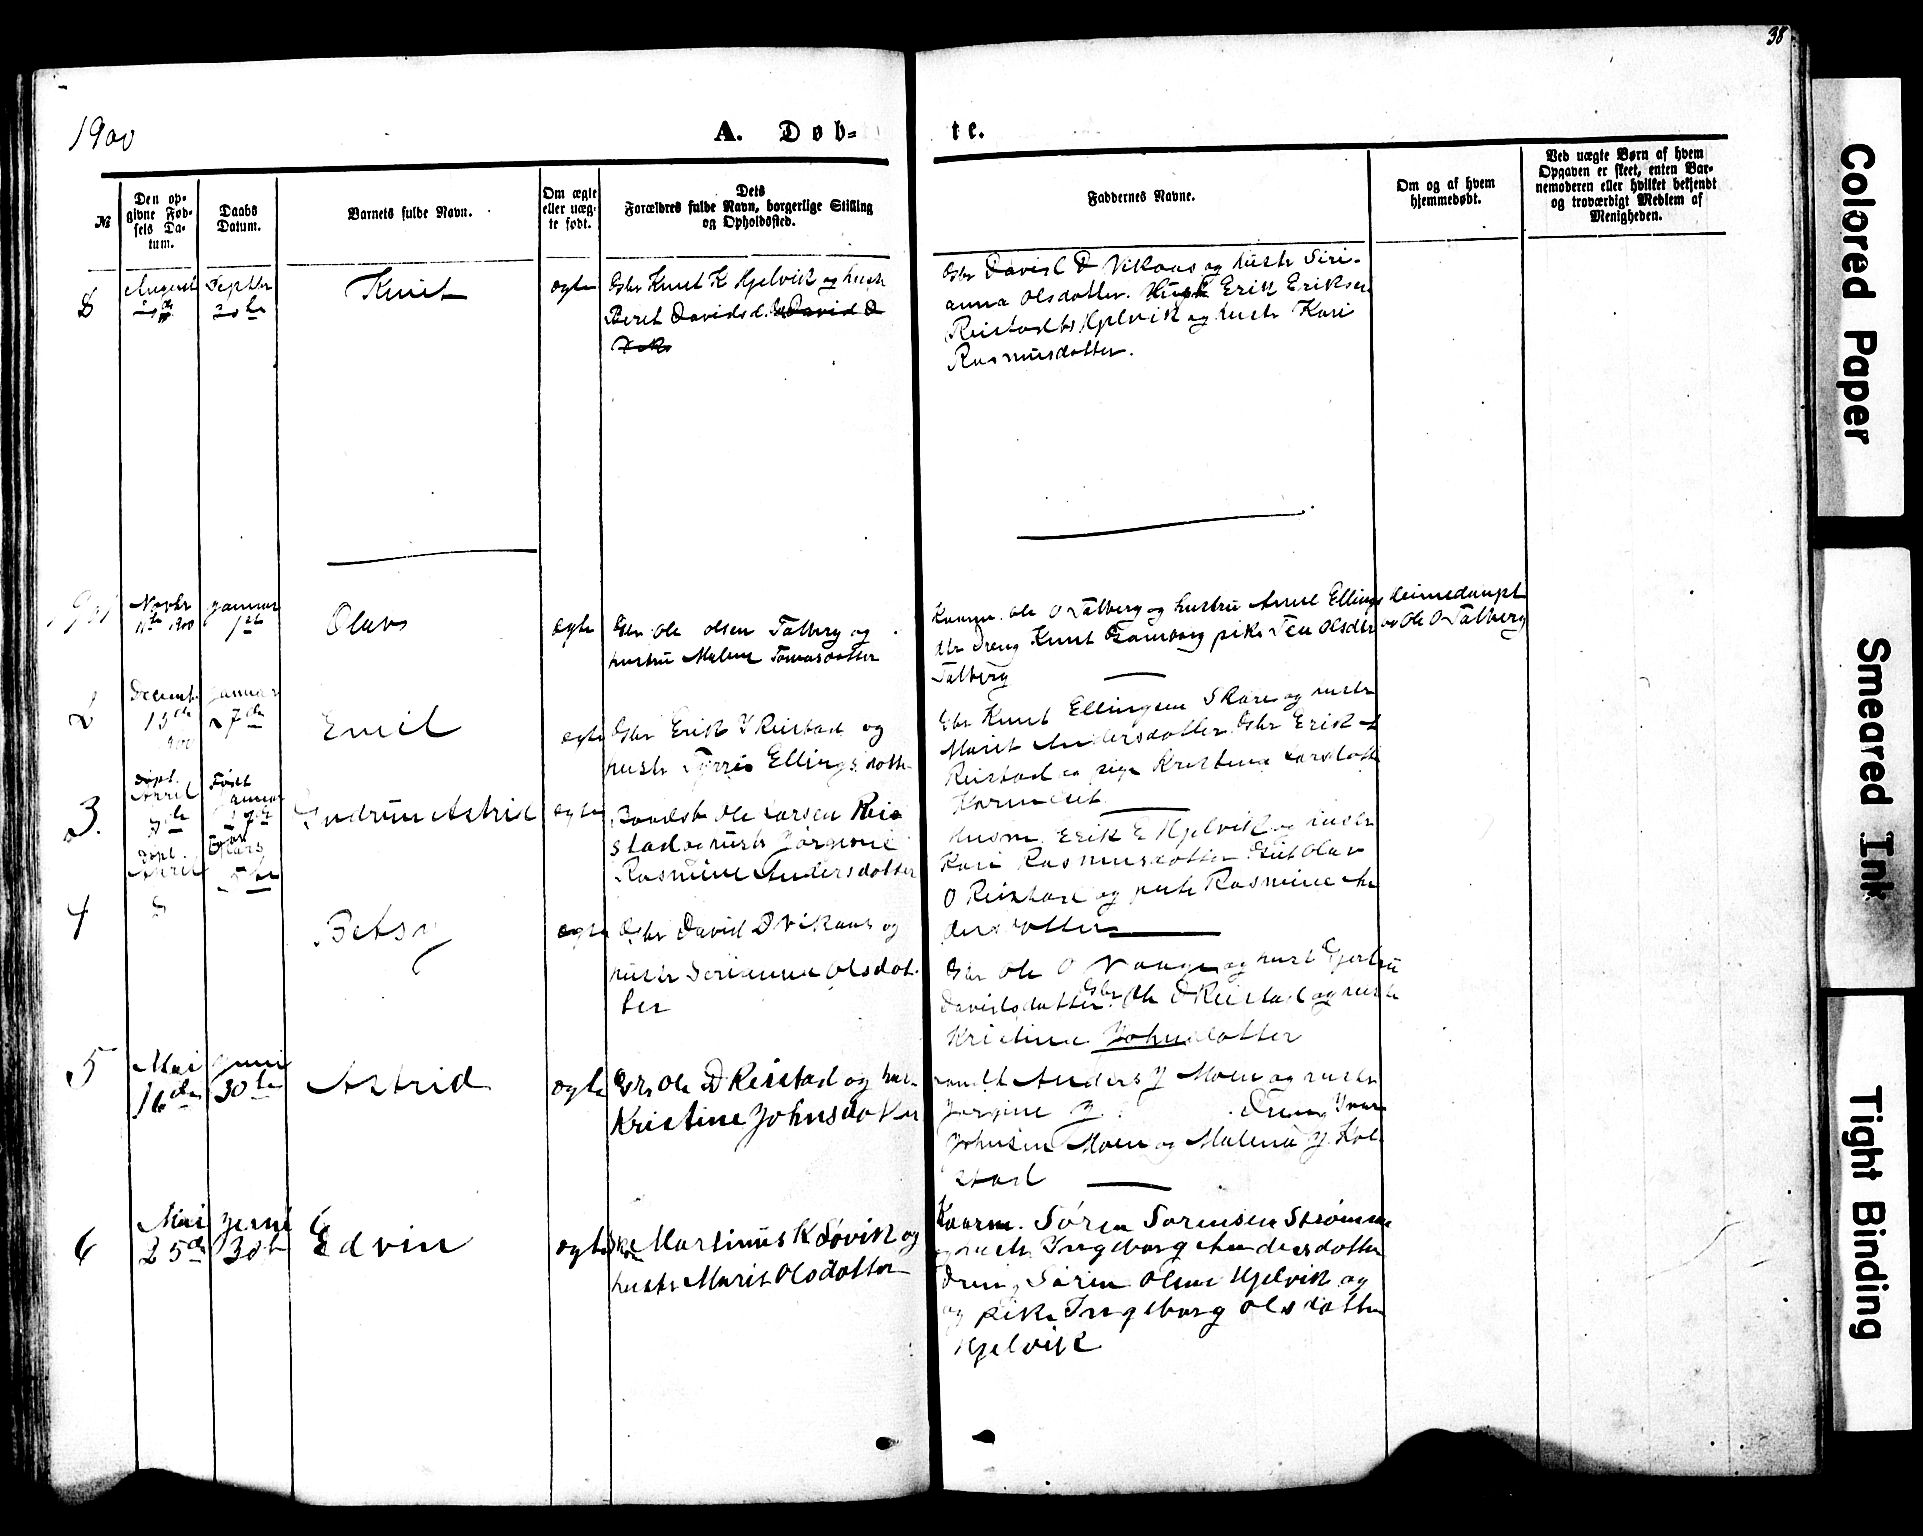 38
1900
A. Døb-
te.
№
Den op-
givne Fød-
sels Da-
tum.
Daabs
Datum.
Barnets fulde Navn.
Om ægte
eller uæg-
te født.
Dets
Forældres fulde Navn, borgerlige Stilling
og Opholdssted.
Faddernes Navne.
Om og af hvem
hjemmedøbt.
Ved uægte Børn af hvem
Opgaven er skeet, enten Bar-
nemoderen eller hvilket bekjendt
og troværdigt Medlem af
Menigheden.
8
August
Septbr
30te
Knut
ægte
Gbr Knut K Hjelvik og hustr
Beret Davidsd. David D
Gbr David D Vikaas og hustr Siri-
anna Olsdotter. Erik Eriksen
Reistad Hjelvik og hustr Kari
Rasmusdotter.
1901
Novbr
11te 1900
Januar
1ste
Olavs
ægte
Gbr Ole Olsen Talberg og
hustru Malene Tomasdotter
Kaarm. Ole O Talberg og hustru Anne Ellings
dtr Dreng Knut pike Olsdtr
Talberg
heimedaupt
av Ole O Talberg
2
Decemb.
13de
1900
Januar
27de
Emil
ægte
Gbr Erik I Reistad og
hustr Ellingsdotter
Gbr Knut Ellingsen Skare og hustr
Marit Andersdotter Gbr Erik
Reistad og pige Kristina Larsdotte
3.
Døpt
April
7de
Født
Januar
17de
Gudrun Astrid
ægte
Baadsb Ole Larsen Rei
stad og hustr Jørgine
Rasmine Andersdotter
Husm. Erik E Hjelvik og hustr
Kari Rasmusdotter Olav
O Reistad og pike Rasmine An
dersdotter
4
Døpt.
April
8
Født
Mars
5te
Betsy
ægte
Gbr David D Vikaas og
hustr Serianna Olsdot-
ter
Gbr Ole O Vaage og hust Gjertru
Davidsdotter Gbr Ole D Reistad og hustr
Kristine Johnsdotter
5
Mai
16de
Juni
30te
Astrid
ægte
Gbr Ole D Reistad og hus-
Kristine Johnsdotter
Anders J Moen og hustr
Jørgine J. Dreng Ivar
Johnsen Moen og Malena J. Kol
stad
6
Mai
25de
Juni
30te
Edvin
ægte
Martinus K Søvik og
hustr Marit Olsdotter
Kaarm. Søren Sørensen Strømme
og hustr Ingeborg Andersdotter
Dreng Søren Olsen Hjelvik og
og pike Ingeborg Olsdotter
Hjelvik
Colored Paper
Smeared Ink
Tight Binding